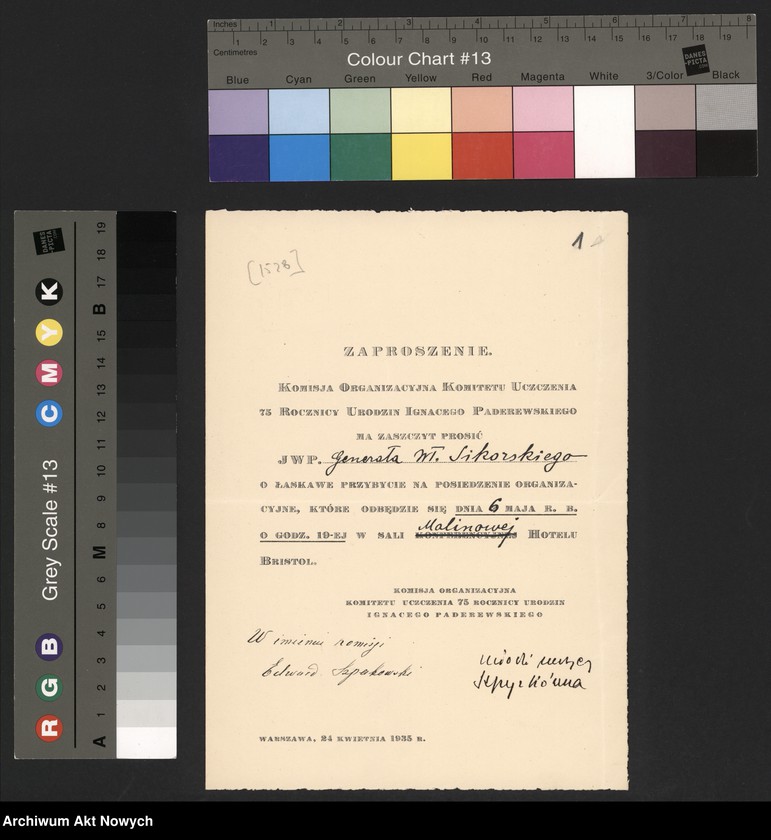 Inches 1 2 3 4 5 6 7 8
Centimetres 1 2 3 4 5 6 7 8 9 10 11 12 13 14 15 16 17 18 19
Colour Chart #13
DANES-PICTA.COM
Blue Cyan Green Yellow Red Magenta White 3/Color Black
Grey Scale #13
R G B C M Y K
DANES-PICTA.COM
A 1 2 3 4 5 6 M 8 9 10 11 12 13 14 15 B 17 18 19
1
[1528]
ZAPROSZENIE.
Komisja Organizacyjna Komitetu Uczczenia
75 Rocznicy Urodzin Ignacego Paderewskiego
ma zaszczyt prosić
JWP. Generała Wł. Sikorskiego
o łaskawe przybycie na posiedzenie organiza-
cyjne, które odbędzie się dnia 6 maja r. b.
Malinowej
o godz. 19-ej w sali konferencyjnej Hotelu
Bristol.
Komisja Organizacyjna
Komitetu Uczczenia 75 Rocznicy Urodzin
Ignacego Paderewskiego
W imieniu komisji
Edward Szpakowski
Warszawa, 24 kwietnia 1935 r.
Archiwum Akt Nowych